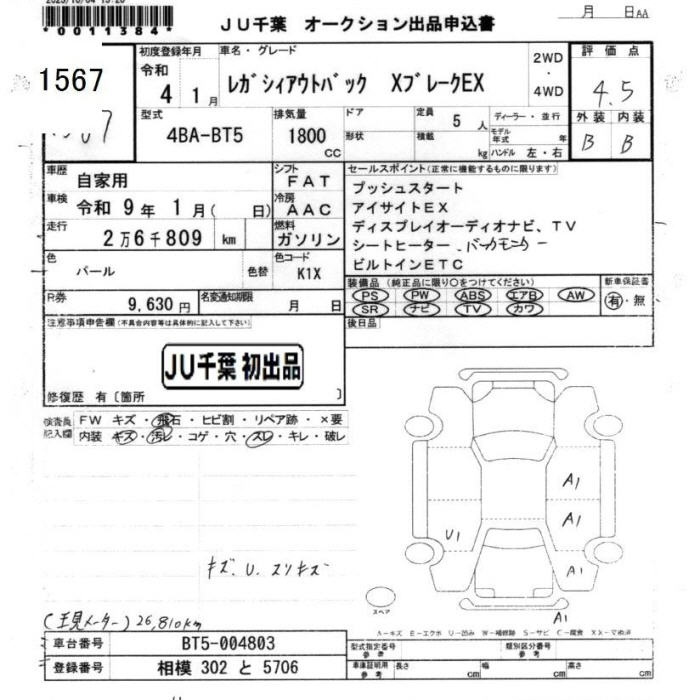 *0011384*
JU千葉 オークション出品申込書
月 日AA
1567
初度登録年月
令和
4 1月
車名・グレード
レガシィアウトバック XブレークEX
2WD
・
4WD
評価点
4.5
外装 内装
B B
型式
4BA-BT5
排気量
1800
CC
ドア
形状
定員
5人
積載
kg
ディーラー・並行
モデル年式 年
ハンドル 左・右
車歴
自家用
車検
令和 9年 1月( 日)
走行
2万6千809 km
色
パール
色替
シフト
FAT
冷房
AAC
燃料
ガソリン
色コード
K1X
R券
9,630円
名変通知期限
月 日
セールスポイント(正常に機能するものに限ります)
プッシュスタート
アイサイトEX
ディスプレイオーディオナビ、TV
シートヒーター、バックモニター
ビルトインETC
装備品(純正品に限り○をつけてください)
PS PW ABS エアB AW
SR ナビ TV カワ
新車保証書
有・無
後日品
注意事項申告欄(不具合内容等は具体的に記入して下さい)
JU千葉 初出品
修復歴 有〔箇所 〕
検査員記入欄
FW キズ・飛石・ヒビ割・リペア跡・×要
内装 キズ・汚レ・コゲ・穴・スレ・キレ・破レ
A1
A1
U1
A1
A1
キズ、U、スリキズ
スペア
(現メーター)26,810km
A-キズ E-エクボ U-凹み W-補修跡 S-サビ C-腐食 XX-交換済
車台番号 BT5-004803
登録番号 相模 302 と 5706
型式指定番号 参考
類別区分番号 参考
車庫証明用 参考
長さ cm 幅 cm 高さ cm